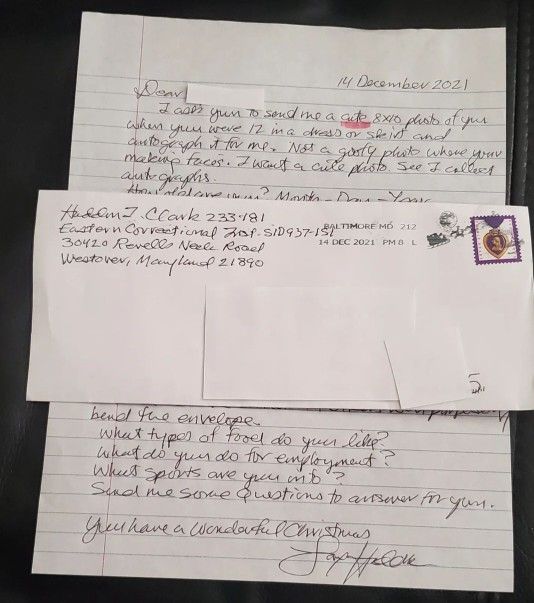 14 December 2021
Dear
I asks yun to send me a cute 8x10 photo of yun
when yun were 12 in a dress or skirt and
autograph it for me. Not a goofy photo where your
making faces. I want a cute photo. See I collect
autographs.
How old are yun? Month - Day - Year
Clark 233-191
Eastern Correctional Inst. SID937-151
30420 Revells Neck Road
Westover, Maryland 21890
BALTIMORE MD 212
14 DEC 2021 PM 8 L
the envelope.
What types of food do yun like?
What do yun do for employment?
What sports are yun into?
Send me some Questions to answer for yun.
You have a wonderful Christmas